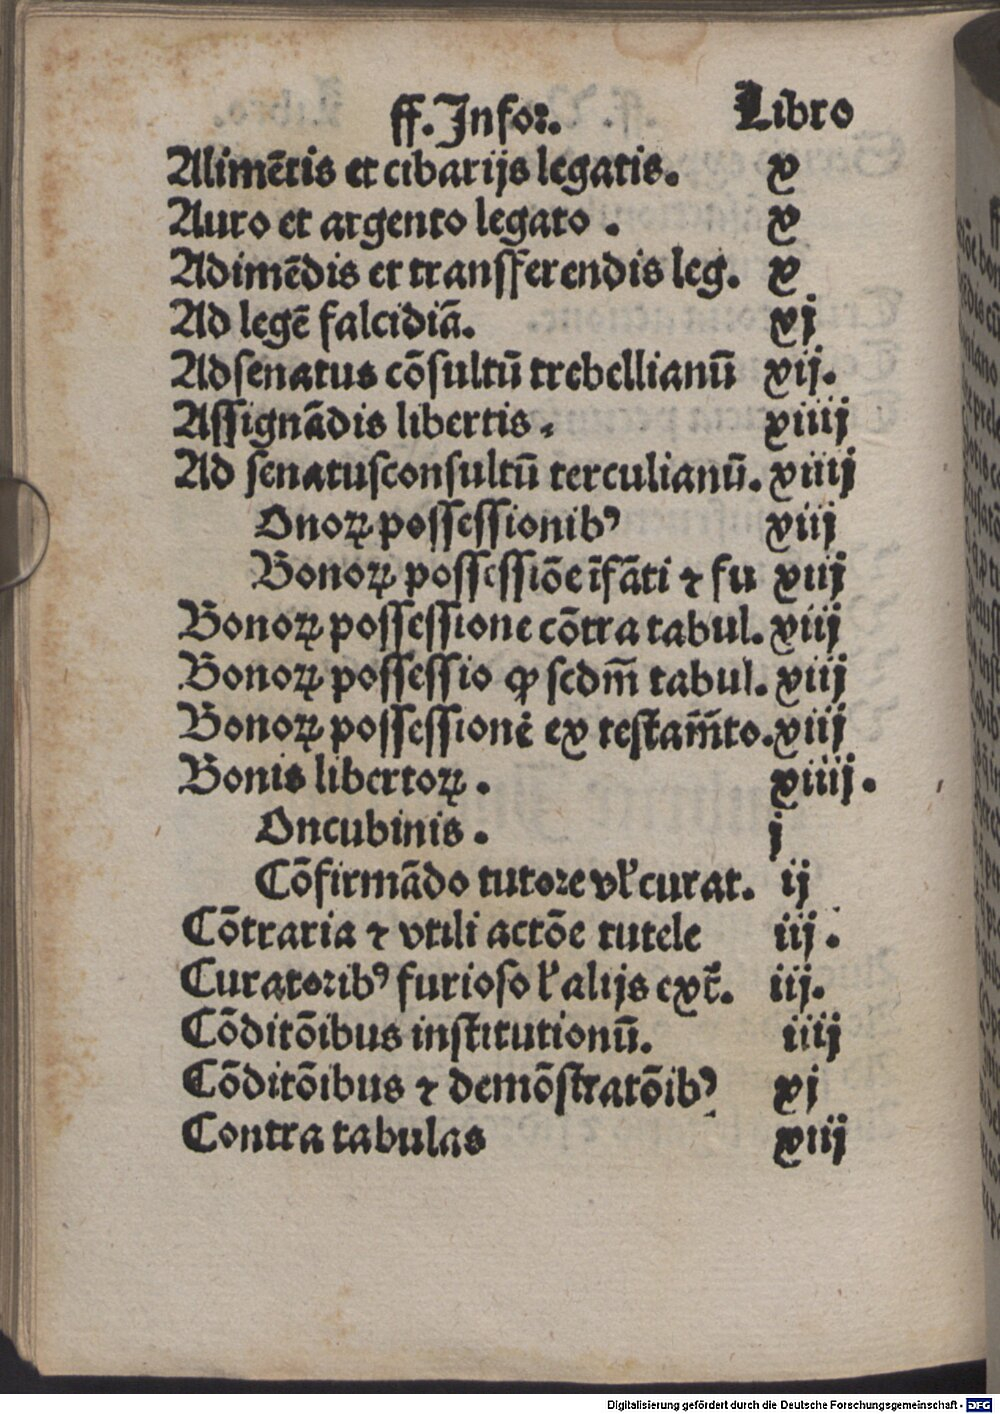 ff. Infoꝛ. Libro
Alimẽtis et cibarijs legatis. x
Auro et argento legato . x
Adimẽdis et transfferendis leg. x
Ad legẽ falcidiã. xj
Adsenatus cõsultũ trebellianũ xij.
Assignãdis libertis. xiiij
Ad senatusconsultũ terculianũ. xiiij
Onoꝝ possessionibꝰ xiij
Bonoꝝ possessiõe ĩfãti ⁊ fu xiij
Bonoꝝ possessione cõtra tabul. xiij
Bonoꝝ possessio ꝙ scdm̃ tabul. xiij
Bonoꝝ possessionẽ ex testam̃to. xiij
Bonis libertoꝝ . xiiij.
Oncubinis . j
Cõfirmãdo tutoꝛe vl̓ curat. ij
Cõtraria ⁊ vtili actõe tutele iij.
Curatoꝛibꝰ furioso l̓ alijs ext̓. iij.
Cõditõibus institutionũ. iiij
Cõditõibus ⁊ demõstratõibꝰ xj
Contra tabulas xiij
Digitalisierung gefördert durch die Deutsche Forschungsgemeinschaft - DFG